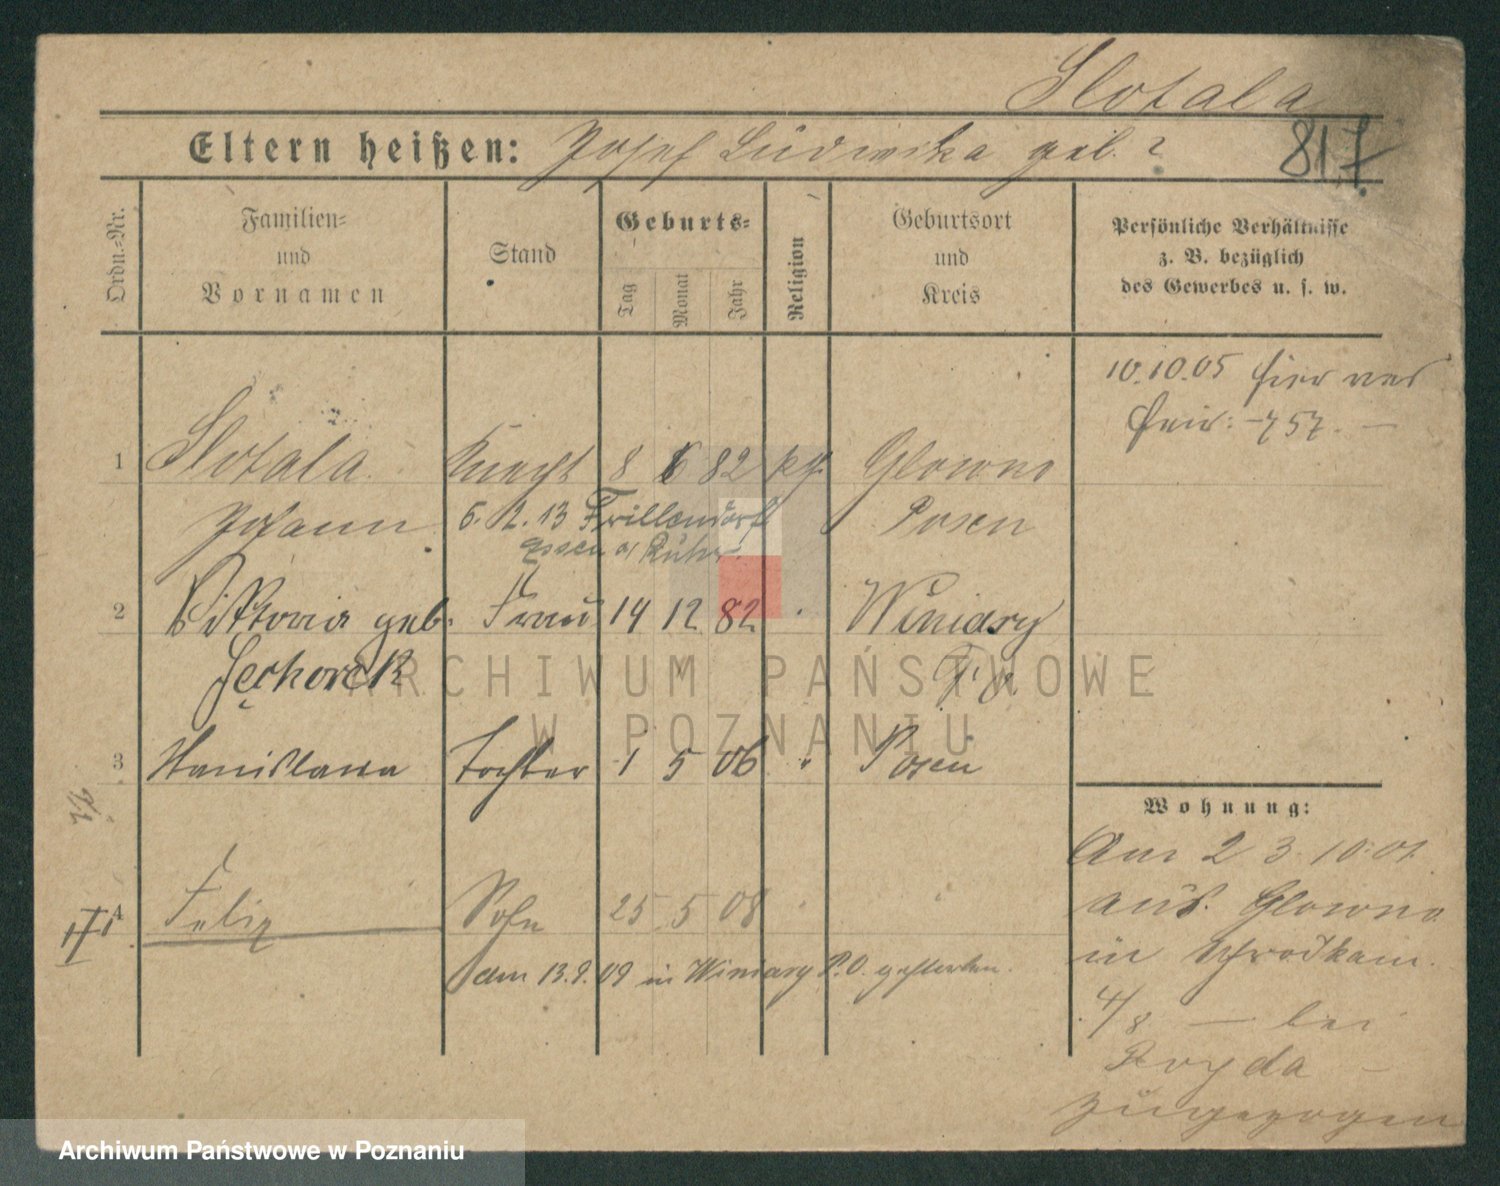 Slotala
Eltern heißen: Josef Ludwika geb. ?
817
Ordn.-Nr.
Familien-
und
Vornamen
Stand
Geburts-
Tag
Monat
Jahr
Religion
Geburtsort
und
Kreis
Persönliche Verhältnisse
z. B. bezüglich
des Gewerbes u. s. w.
10.10.05 hier
757.
1 Slotala Knecht 8 6 82 kth. Glowno
Johann 6. 2. 13 Frillendorf Posen
Essen a/ Ruhr
2 Viktoria geb. Frau 14 12 82 " Winiary
Jechorek
3 Stanislawa Tochter 1 5 06 " Posen
4 Felix Sohn 25 5 08 " "
am 13.9.09 in Winiary P.O. gestorben.
Wohnung:
Am 2 3. 10.01.
aus. Glowno
in Schrodkam.
4/8 — bei
zugezogen
ARCHIWUM PAŃSTWOWE
W POZNANIU
Archiwum Państwowe w Poznaniu